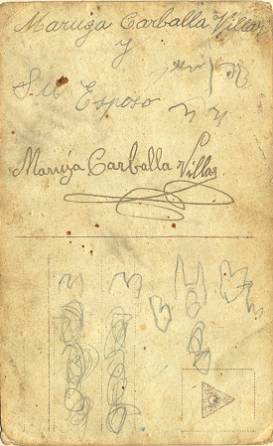 Maruja Carballa Villar
y
Su Esposo
Maruja Carballa Villar